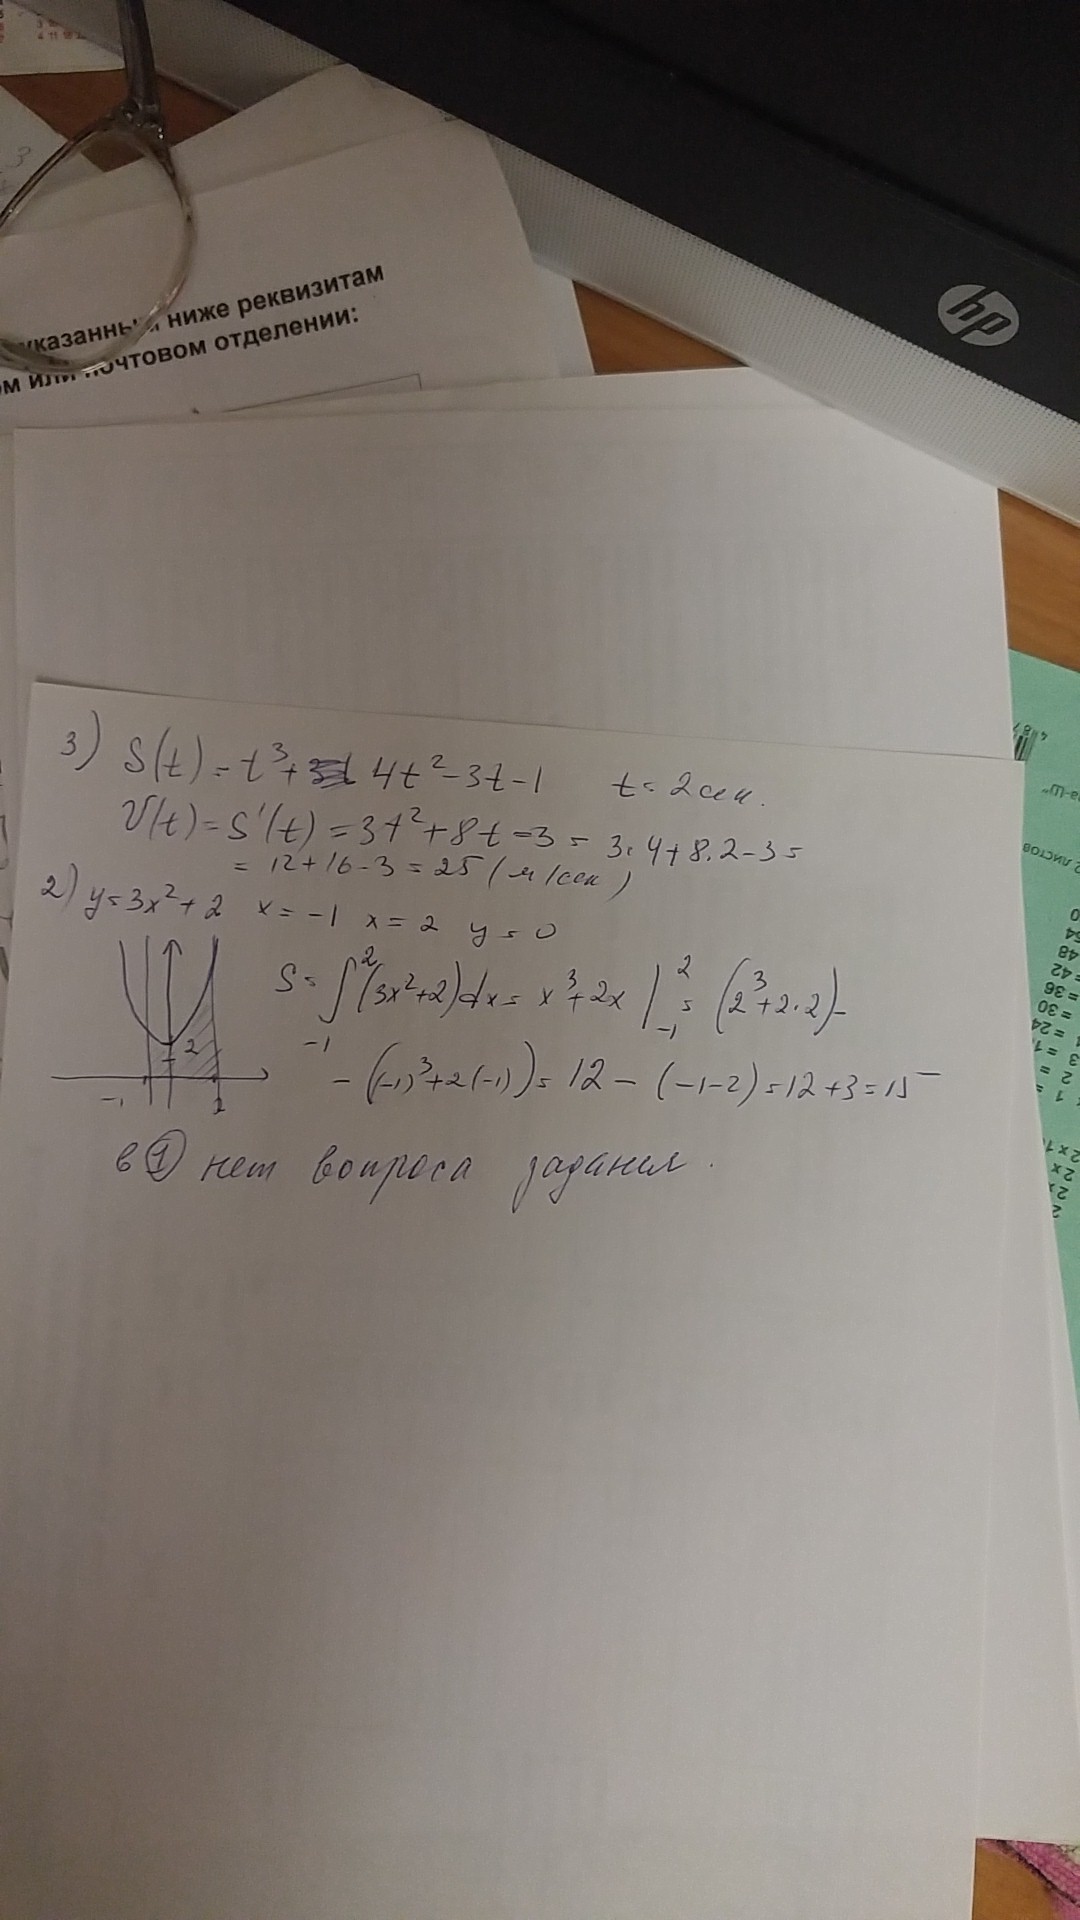 указанным ниже реквизитам
ом или почтовом отделении:
hp
3) S(t) = t³ + 4t² - 3t - 1 t = 2 сек.
V(t) = S'(t) = 3t² + 8t - 3 = 3·4 + 8·2 - 3 =
= 12 + 16 - 3 = 25 (м/сек)
2) y = 3x² + 2 x = -1 x = 2 y = 0
S = ∫₋₁² (3x² + 2)dx = x³ + 2x |₋₁² = (2³ + 2·2) -
- ((-1)³ + 2(-1)) = 12 - (-1-2) = 12 + 3 = 15
2
-1 2
в ① нет вопроса задания.